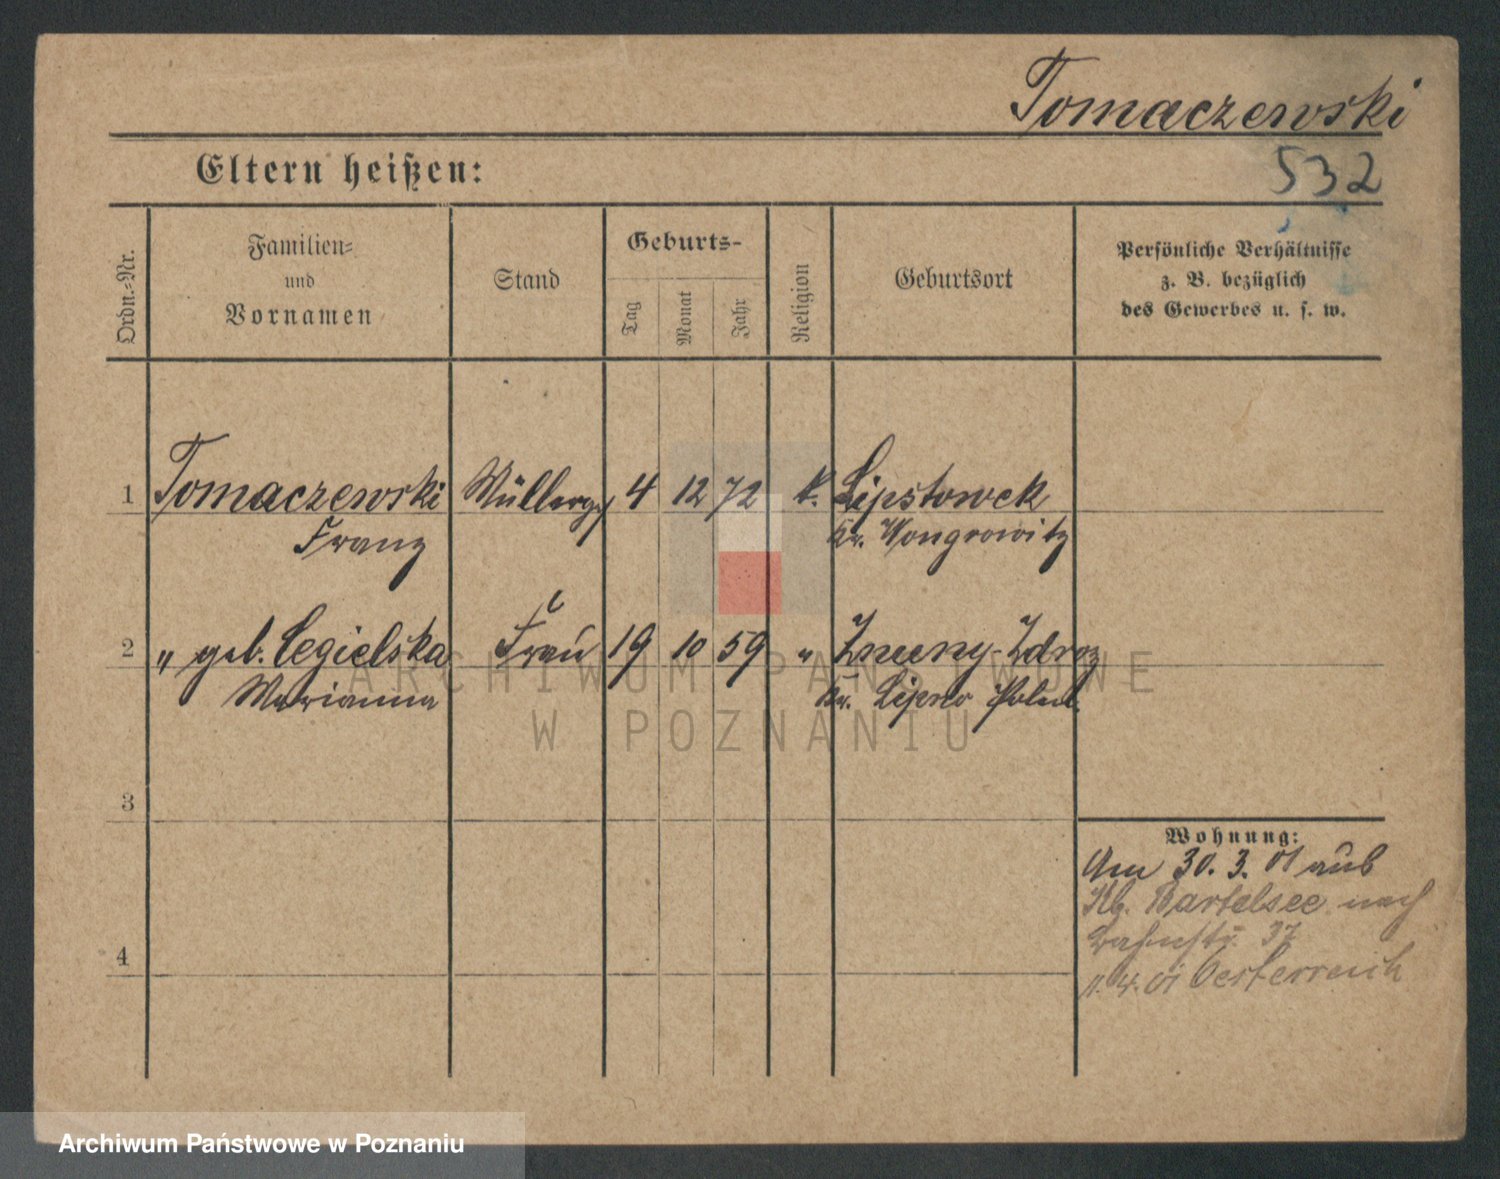 Tomaczewski
Eltern heißen:
532
Ordn.-Nr.
Familien-
und
Vornamen
Stand
Geburts-
Tag
Monat
Jahr
Religion
Geburtsort
Persönliche Verhältnisse
z. B. bezüglich
des Gewerbes u. s. w.
1 Tomaczewski Müllerges 4 12 72 k. Lipstowek
Franz Kr. Wongrowitz
2 " geb. Cegielska Frau 19 10 59 "
Marianna Kr. Lipno Poln.
ARCHIWUM PAŃSTWOWE
W POZNANIU
3
Wohnung:
Am 30. 3. 01 aus
Kg. Bartelsee nach
Bahnstr. 37
4
11. 4. 01 Oesterreich
Archiwum Państwowe w Poznaniu